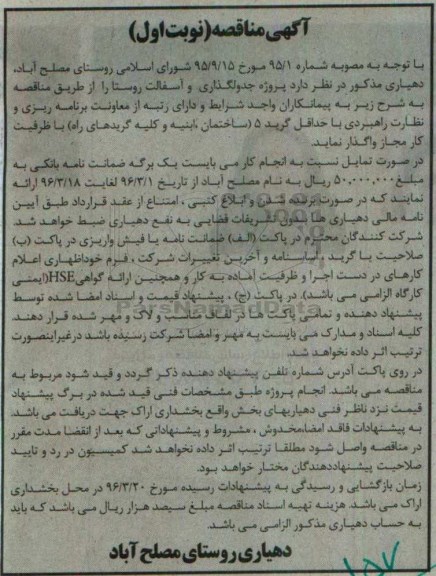 آگهی مناقصه (نوبت اول)
با توجه به مصوبه شماره ۹۵/۱ مورخ ۹۵/۹/۱۵ شورای اسلامی روستای مصلح آباد،
دهیاری مذکور در نظر دارد پروژه جدولگذاری و آسفالت روستا را از طریق مناقصه
به شرح زیر به پیمانکاران واجد شرایط و دارای رتبه از معاونت برنامه ریزی و
نظارت راهبردی با حداقل گرید ۵ (ساختمان ،ابنیه و کلیه گریدهای راه) با ظرفیت
کار مجاز واگذار نماید.
در صورت تمایل نسبت به انجام کار می بایست یک برگه ضمانت نامه بانکی به
مبلغ ۵۰,۰۰۰,۰۰۰ ریال به نام مصلح آباد از تاریخ ۹۶/۳/۱ لغایت ۹۶/۳/۱۸ ارائه
نمایند که در صورت برنده شدن و ابلاغ کتبی ، امتناع از عقد قرارداد طبق آیین
نامه مالی دهیاری ها بدون تشریفات قضایی به نفع دهیاری ضبط خواهد شد.
شرکت کنندگان محترم در پاکت (الف) ضمانت نامه یا فیش واریزی در پاکت (ب)
صلاحیت با گرید ، اساسنامه و آخرین تغییرات شرکت ، فرم خوداظهاری اعلام
کارهای در دست اجرا و ظرفیت آماده به کار و همچنین ارائه گواهی HSE(ایمنی
کارگاه الزامی می باشد). در پاکت (ج) ، پیشنهاد قیمت و اسناد امضا شده توسط
پیشنهاد دهنده و تمامی پاکت ها در لفاف مناسب و لاک و مهر شده قرار دهند
کلیه اسناد و مدارک می بایست به مهر و امضا شرکت رسیده باشد درغیراینصورت
ترتیب اثر داده نخواهد شد.
در روی پاکت آدرس شماره تلفن پیشنهاد دهنده ذکر گردد و قید شود مربوط به
مناقصه می باشد. انجام پروژه طبق مشخصات فنی قید شده در برگ پیشنهاد
قیمت نزد ناظر فنی دهیاریهای بخش واقع بخشداری اراک جهت دریافت می باشد.
به پیشنهادات فاقد امضا،مخدوش ، مشروط و پیشنهاداتی که بعد از انقضا مدت مقرر
در مناقصه واصل شود مطلقا ترتیب اثر داده نخواهد شد کمیسیون در رد و تایید
صلاحیت پیشنهاددهندگان مختار خواهد بود.
زمان بازگشایی و رسیدگی به پیشنهادات رسیده مورخ ۹۶/۳/۲۰ در محل بخشداری
اراک می باشد. هزینه تهیه اسناد مناقصه مبلغ سیصد هزار ریال می باشد که باید
به حساب دهیاری مذکور الزامی می باشد.
دهیاری روستای مصلح آباد